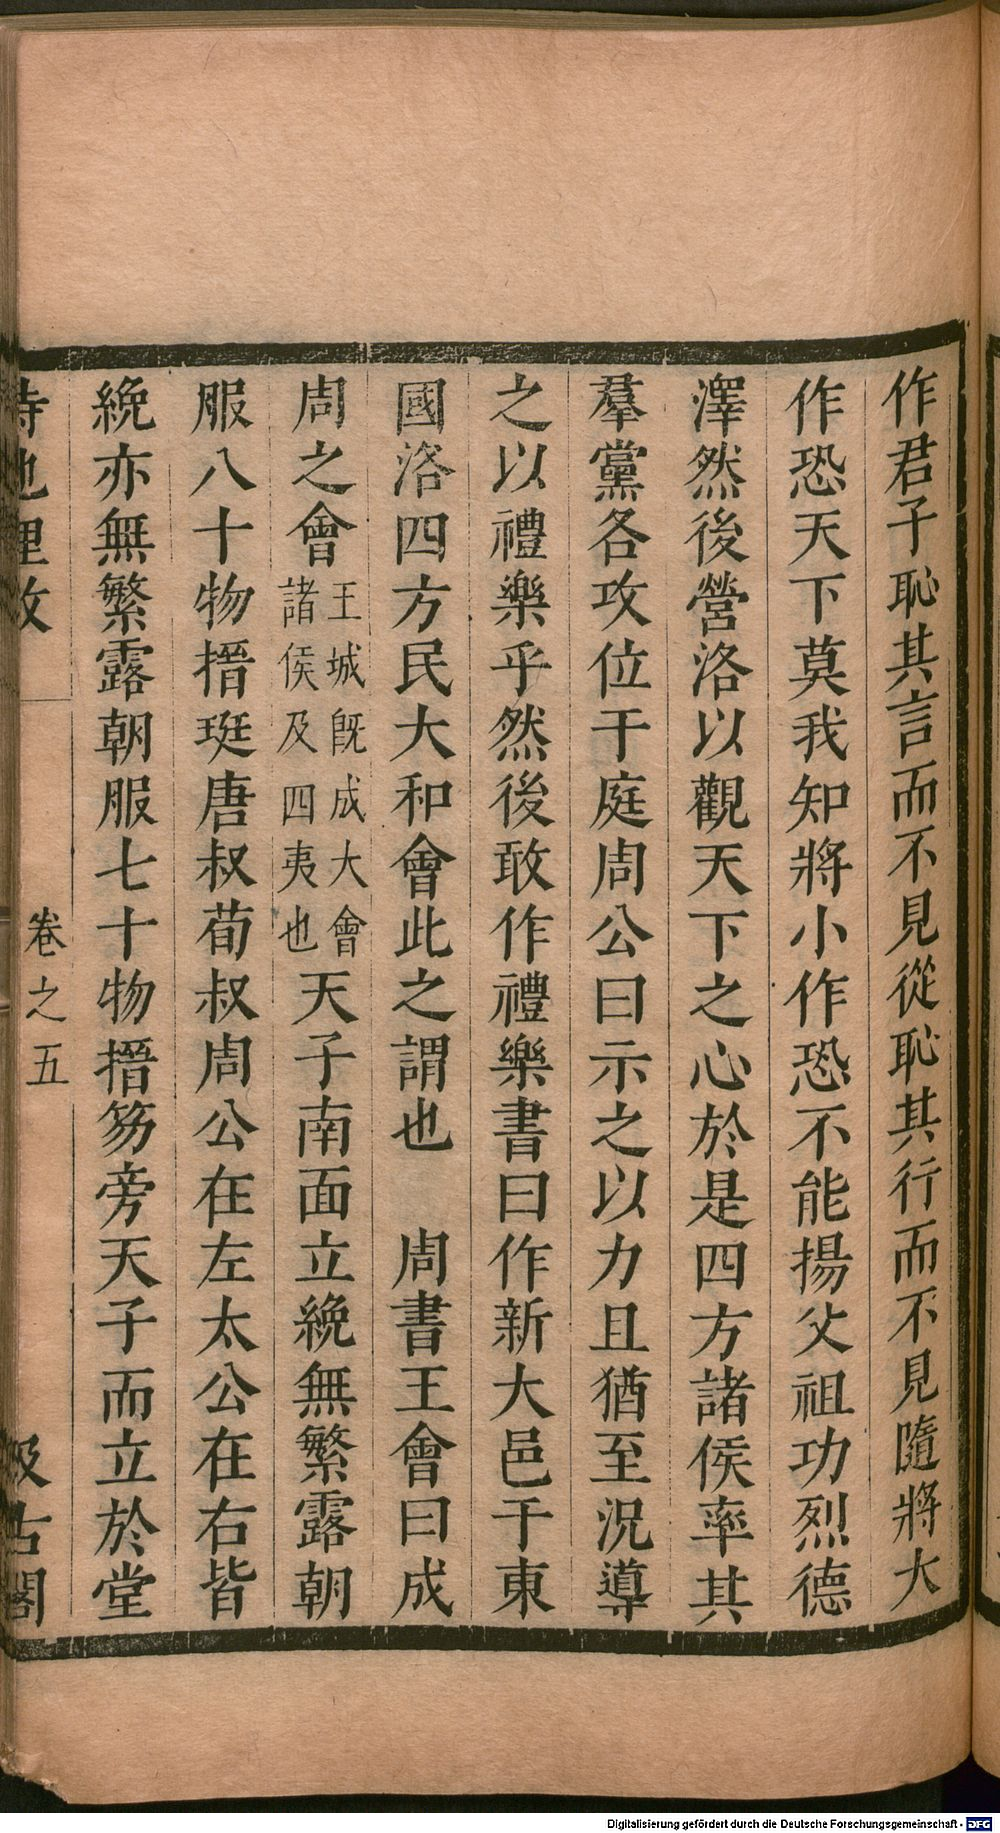 作君子恥其言而不見從恥其行而不見隨將大
作恐天下莫我知將小作恐不能揚父祖功烈德
澤然後營洛以觀天下之心於是四方諸侯率其
羣黨各攻位于庭周公曰示之以力且猶至況導
之以禮樂乎然後敢作禮樂書曰作新大邑于東
國洛四方民大和會此之謂也　周書王會曰成
周之會王城既成大會諸侯及四夷也天子南面立絻無繁露朝
服八十物搢珽唐叔荀叔周公在左太公在右皆
絻亦無繁露朝服七十物搢笏旁天子而立於堂
詩地理攷　卷之五　汲古閣
Digitalisierung gefördert durch die Deutsche Forschungsgemeinschaft - DFG